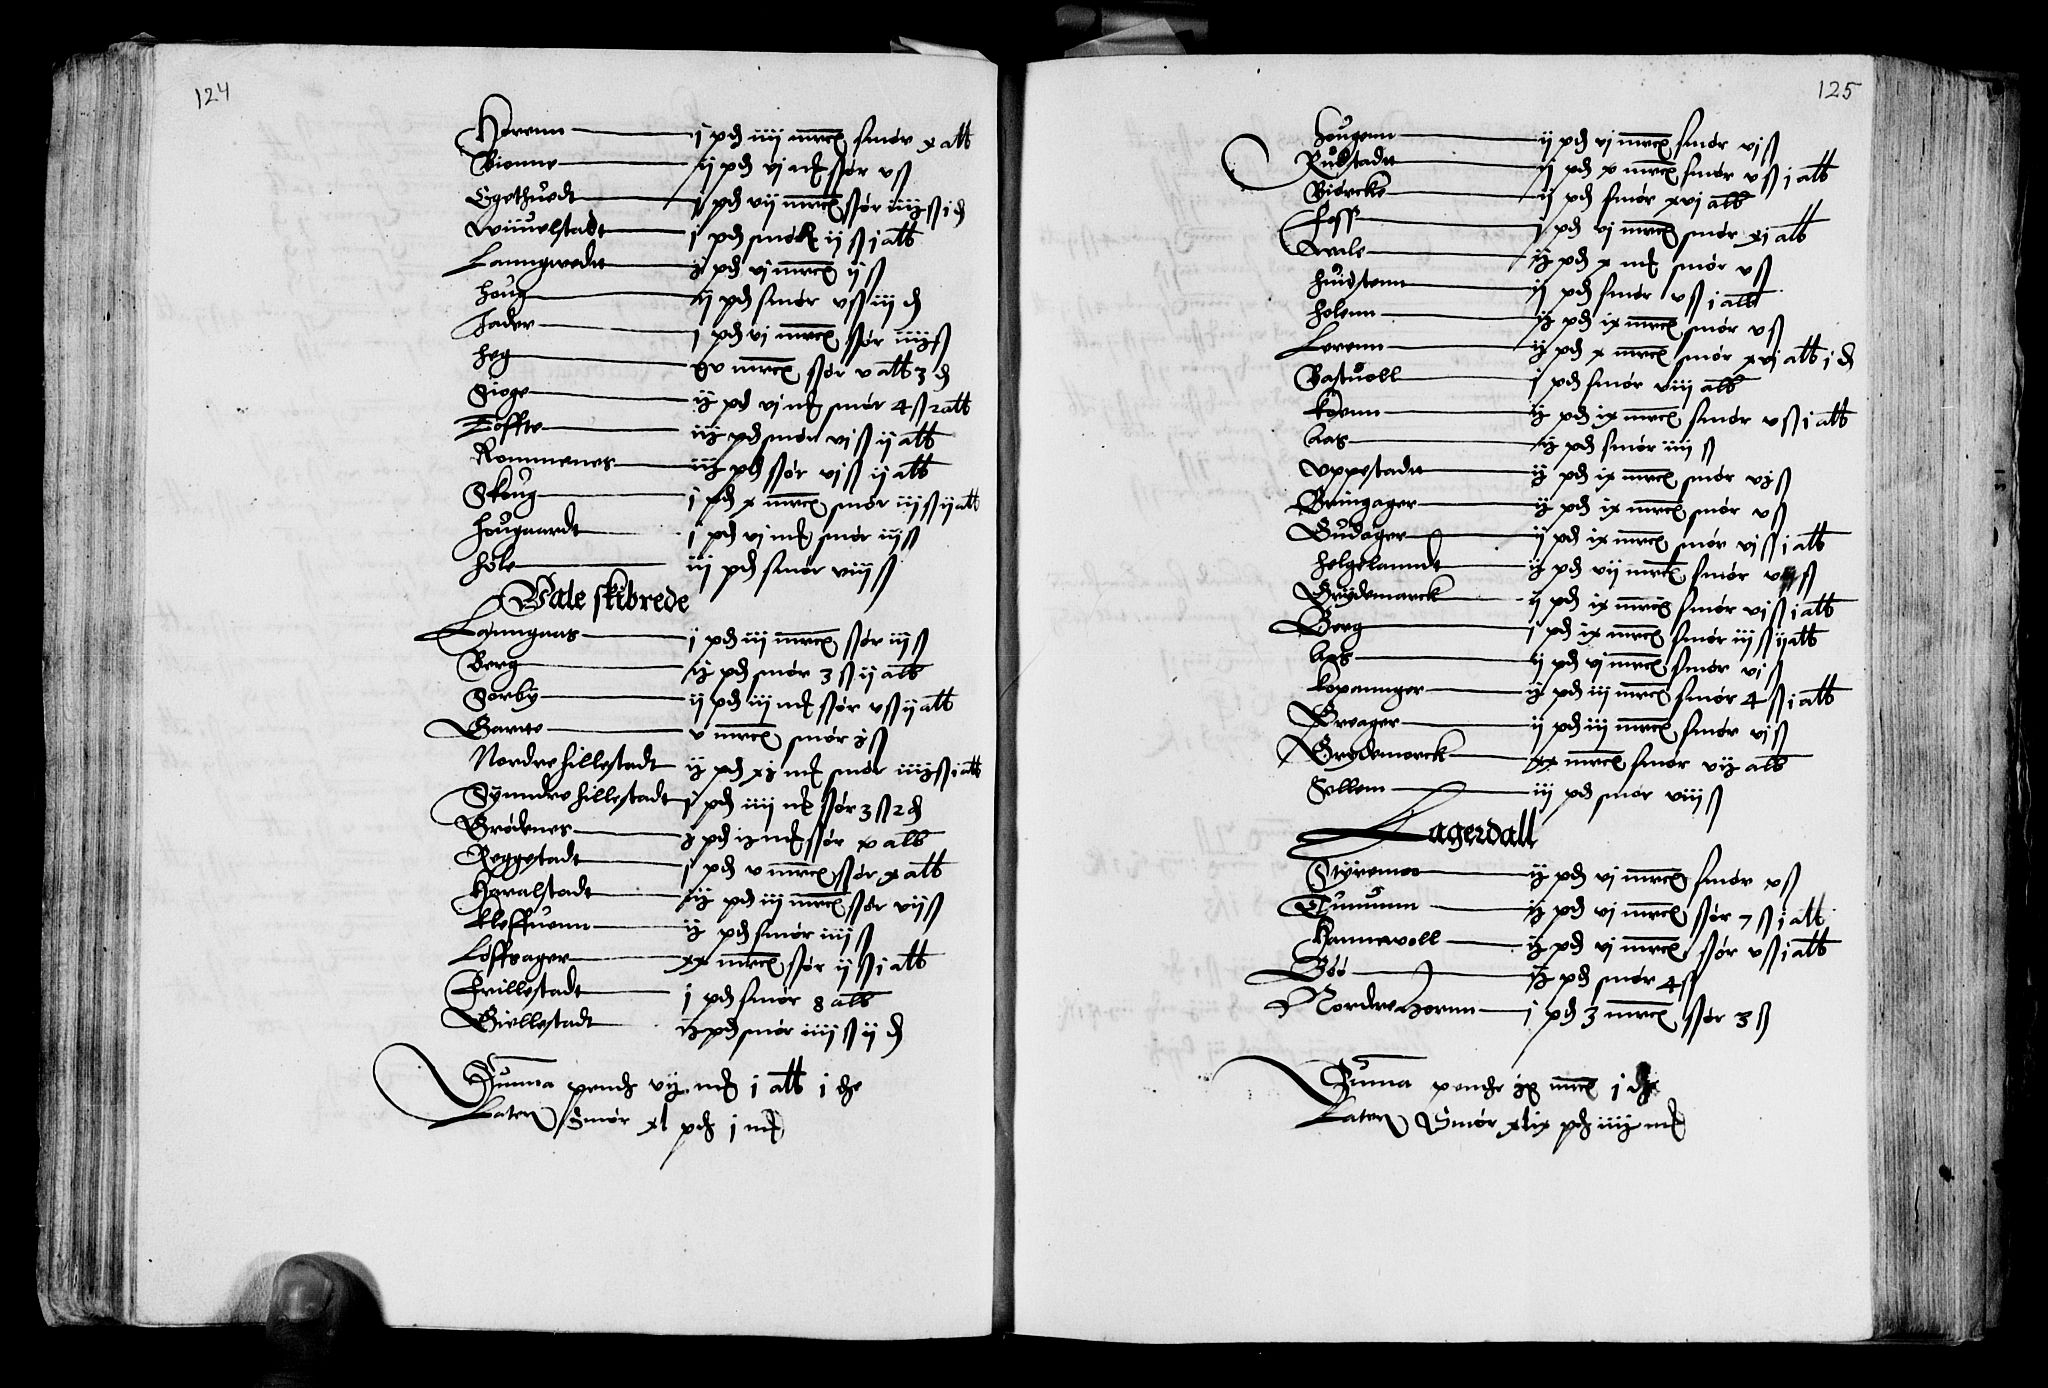 124
Horenn — j pd iiij mrck smør x alb
Vionne — ij pd vj mk smør v ß
Egethuedt — j pd vij mrck smør iiij ß i d
Wiiuelstadt — j pd smør ij ß j alb
Lanngwedtt — ij pd vj mrck ij ß
Houg — ij pd smør v ß iij d
Jader — j pd vj mrck smør iiij ß
Heg — xv mrck smør v alb 3 d
Sioge — ij pd vj mk smør 4 ß 2 alb
Toffte — iij pd smør vj ß ij alb
Rommenes — iij pd smør vj ß ij alb
Skoug — j pd x mrck smør iij ß ij alb
Hougaardt — j pd vj mk smør iij ß
Hole — iij pd smør viij ß
Vale skibrede
Lanngaas — j pd iij mrck smør iij ß
Berg — ij pd smør 3 ß ij alb
Sorby — ij pd iij mk smør v ß ij alb
Garnte — v mrck smør j ß
Nordre hillestadt ij pd xj mk smør iiij ß i alb
Synndre hillestadt j pd iiij mk smør 3 ß 2 d
Grødenes — j pd ij mk smør x alb
Reggestadt — j pd v mrck smør x alb
Haralstadt — iij pd iij mrck smør vij ß
Kleffuenn — ij pd smør iiij ß
Loffsager — xx mrck smør ij ß i alb
Frillestadt — j pd smør 8 alb
Giellestadt — ij pd smør iiij ß ij d
Summa pendz vij mk j alb j d
Lateris Smør xl pd j mk
125
Hougenn — ij pd vj mrck smør vj ß
Rudstadtt — ij pd x mrck smør v ß j alb
Biørcke — ij pd smør xvj alb
Foss — j pd vj mrck smør xj alb
Auale — ij pd x mk smør v ß
Huidstenn — ij pd smør v ß j alb
Holenn — ij pd ix mrck smør v ß
Lerenn — ij pd x mrck smør xvj alb j d
Bastuoll — j pd smør viij alb
Køenn — ij pd ix mrck smør v ß i alb
Aas — ij pd smør iiij ß
Vppestadtt — ij pd ix mrck smør vj ß
Bringager — ij pd ix mrck smør v ß
Gudager — ij pd ix mrck smør vj ß j alb
Helgelanndt — ij pd vij mrck smør ß
Grydemarck — ij pd ix mrck smør vj ß i alb
Berg — j pd ix mrck smør iij ß ij alb
Aas — ij pd vj mrck smør vj ß
Kopannger — ij pd iij mrck smør 4 ß j alb
Breager — ij pd iij mrck smør vj ß
Grydemorck — xx mrck smør vij alb
Sollem — iij pd smør viij ß
Lagerdall
Styremoe — ij pd vj mrck smør x ß
Tunuunn — ij pd vj mrck smør 7 ß j alb
Hannevoll — ij pd vj mrck smør v ß i alb
Bøø — ij pd smør 4 ß
Nordre Hornn — j pd 3 mrck smør 3 ß
Summa pendz mrck j d
Lateris Smør xlix pd iiij mk